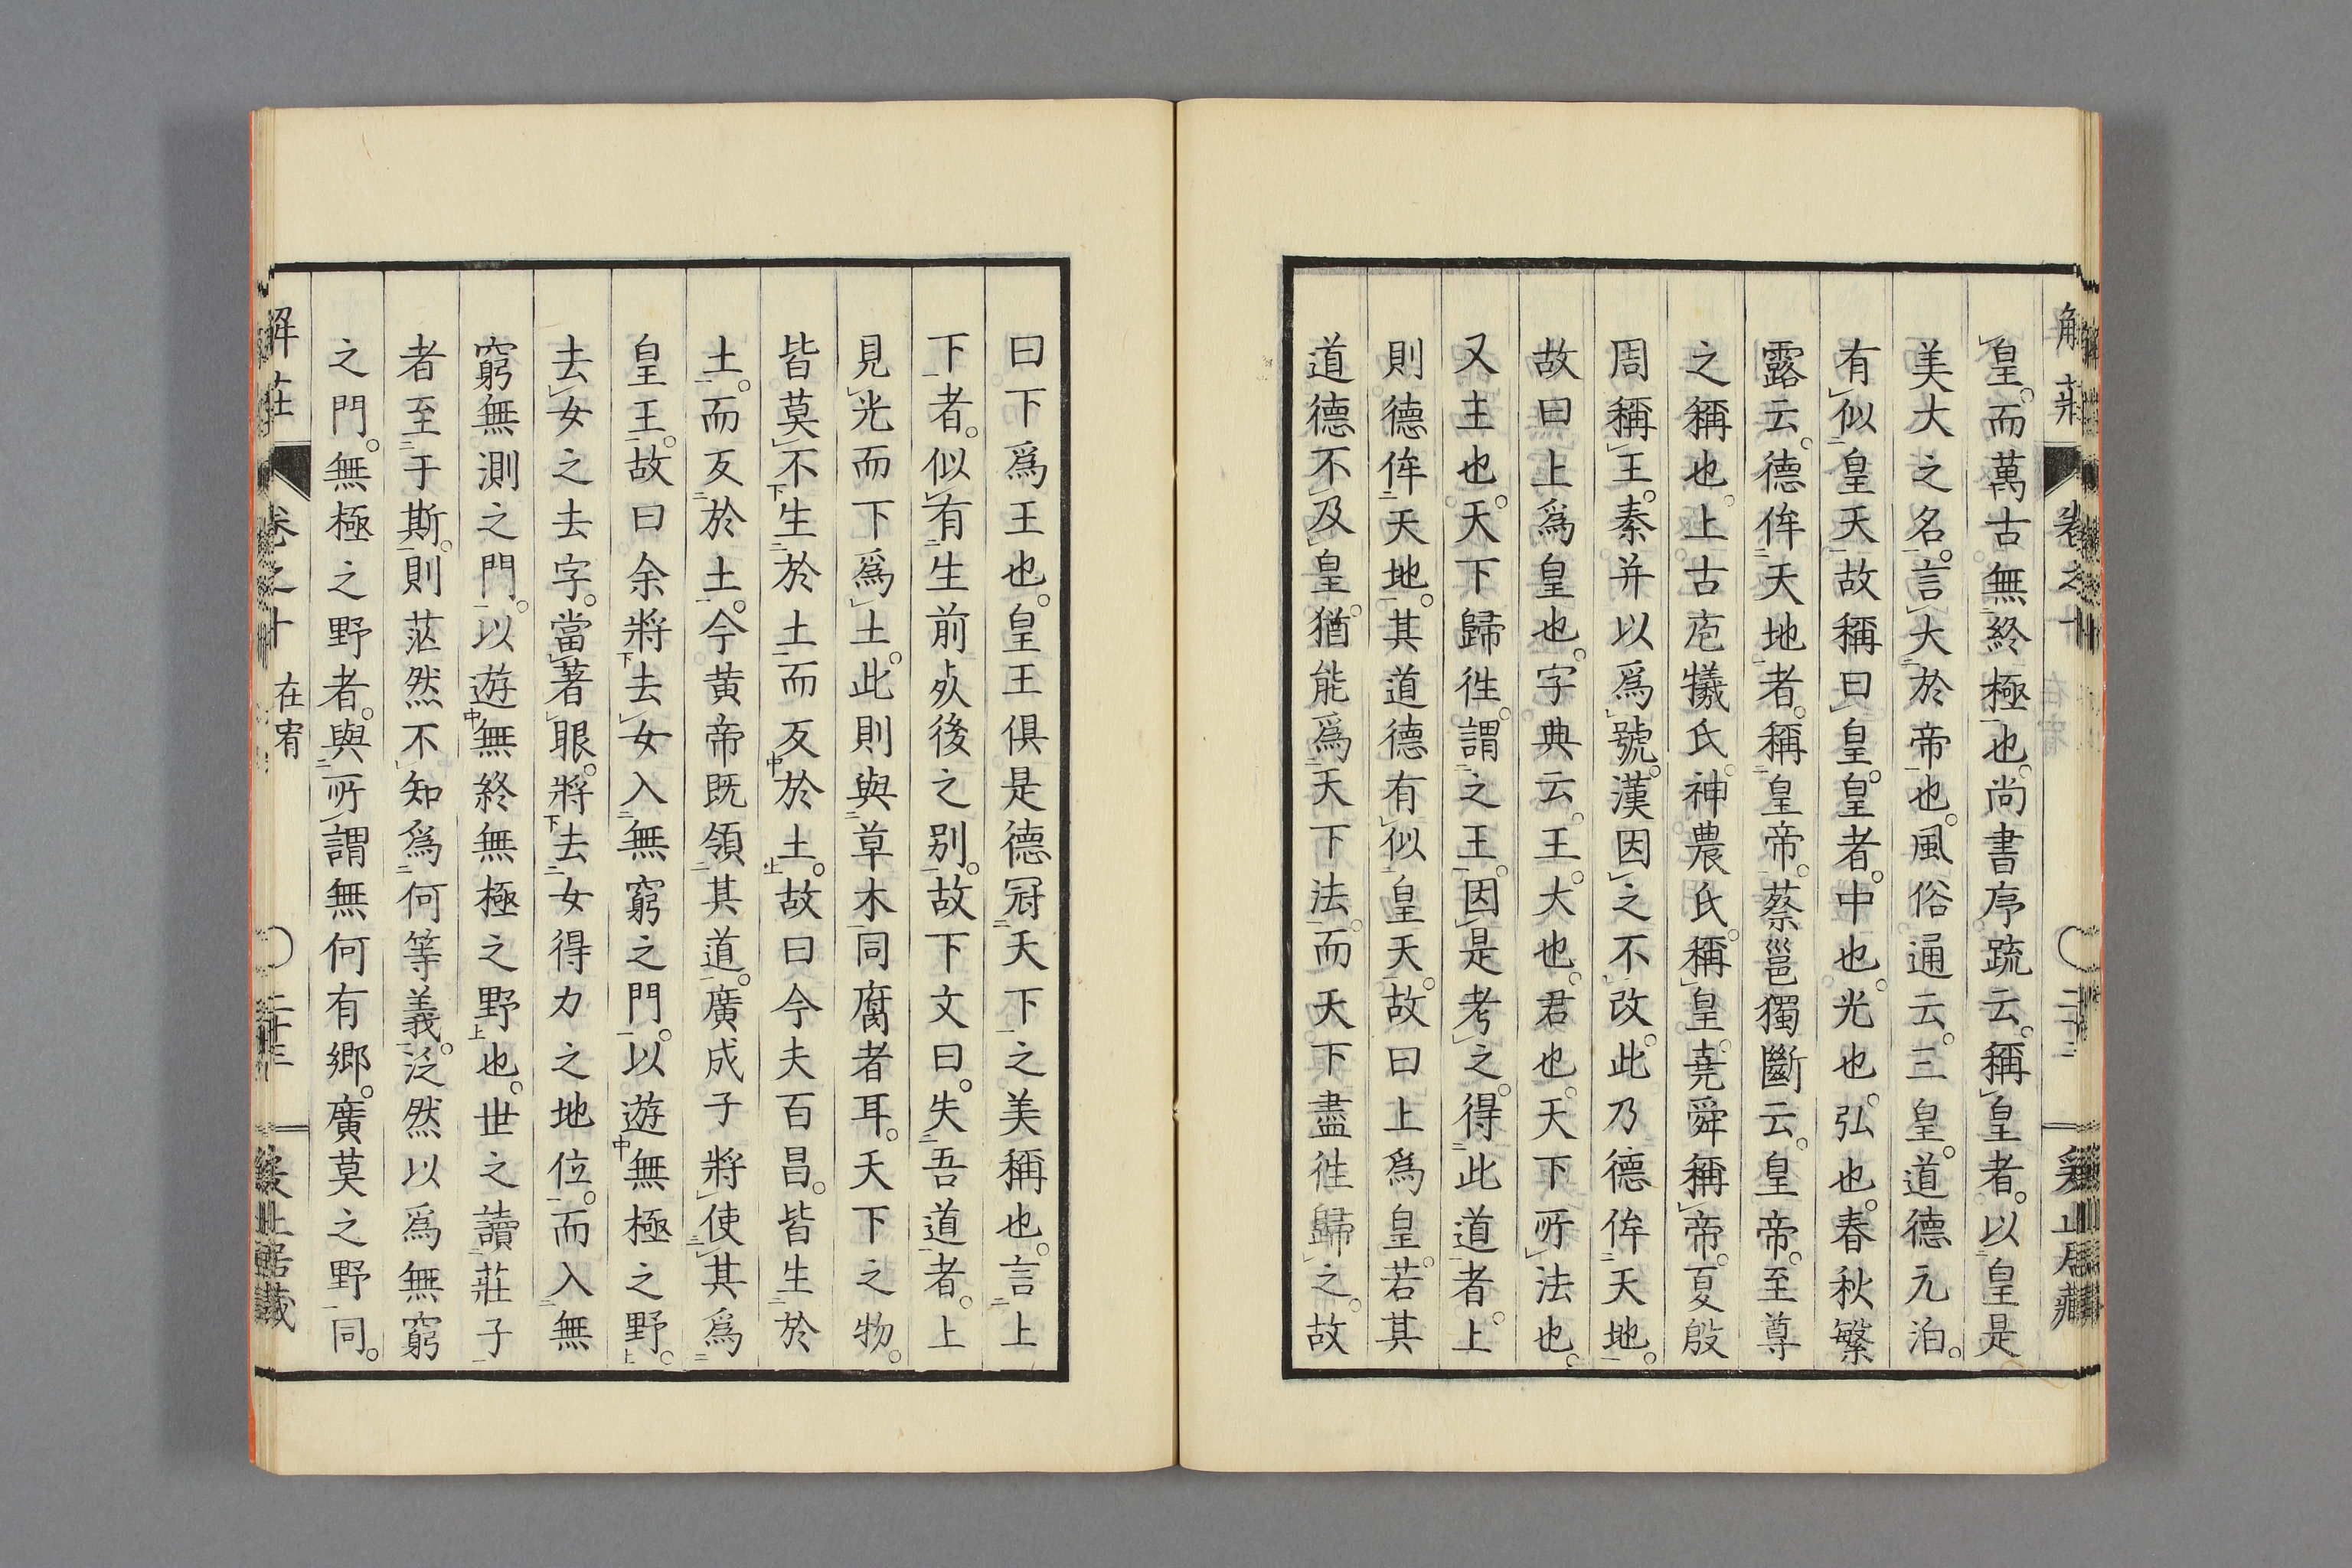 皇。而萬古無終極也。尚書序疏云。稱皇者。以皇是
美大之名。言大於帝也。風俗通云。三皇。道德元泊。
有似皇天。故稱曰皇。皇者。中也。光也。弘也。春秋繁
露云。德侔天地者。稱皇帝。蔡邕獨斷云。皇帝。至尊
之稱也。上古庖犧氏。神農氏。稱皇。堯舜稱帝。夏殷
周稱王。秦并以爲號。漢因之不改。此乃德侔天地。
故曰上爲皇也。字典云。王。大也。君也。天下所法也。
又主也。天下歸徃。謂之王。因是考之。得此道者。上
則德侔天地。其道德有似皇天。故曰上爲皇。若其
道德不及皇。猶能爲天下法。而天下盡徃歸之。故
曰下爲王也。皇王俱是德冠天下之美稱也。言上
下者。似有生前死後之別。故下文曰。失吾道者。上
見光而下爲土。此則與草木同腐者耳。天下之物。
皆莫不生於土而反於土。故曰今夫百昌。皆生於
土。而反於土。今黄帝既領其道。廣成子將使其爲
皇王。故曰余將去女入無窮之門。以遊無極之野。
去女之去字。當著眼。將去女得力之地位。而入無
窮無測之門。以遊無終無極之野也。世之讀莊子
者至于斯。則茫然不知爲何等義。泛然以爲無窮
之門。無極之野者。與所謂無何有鄉。廣莫之野同。
解莊 卷之十 在宥